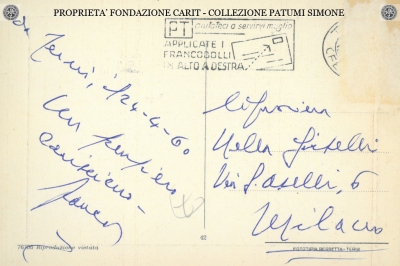 PROPRIETA' FONDAZIONE CARIT - COLLEZIONE PATUMI SIMONE
PT aiutateci a servirvi meglio
APPLICATE I
FRANCOBOLLI
IN ALTO A DESTRA
da Terni, 24-4-60
Un pensiero
carissimo
Nella
Via 6
Milano
Riproduzione vietata
62
FOTOTIPIA BERRETTA - TERNI